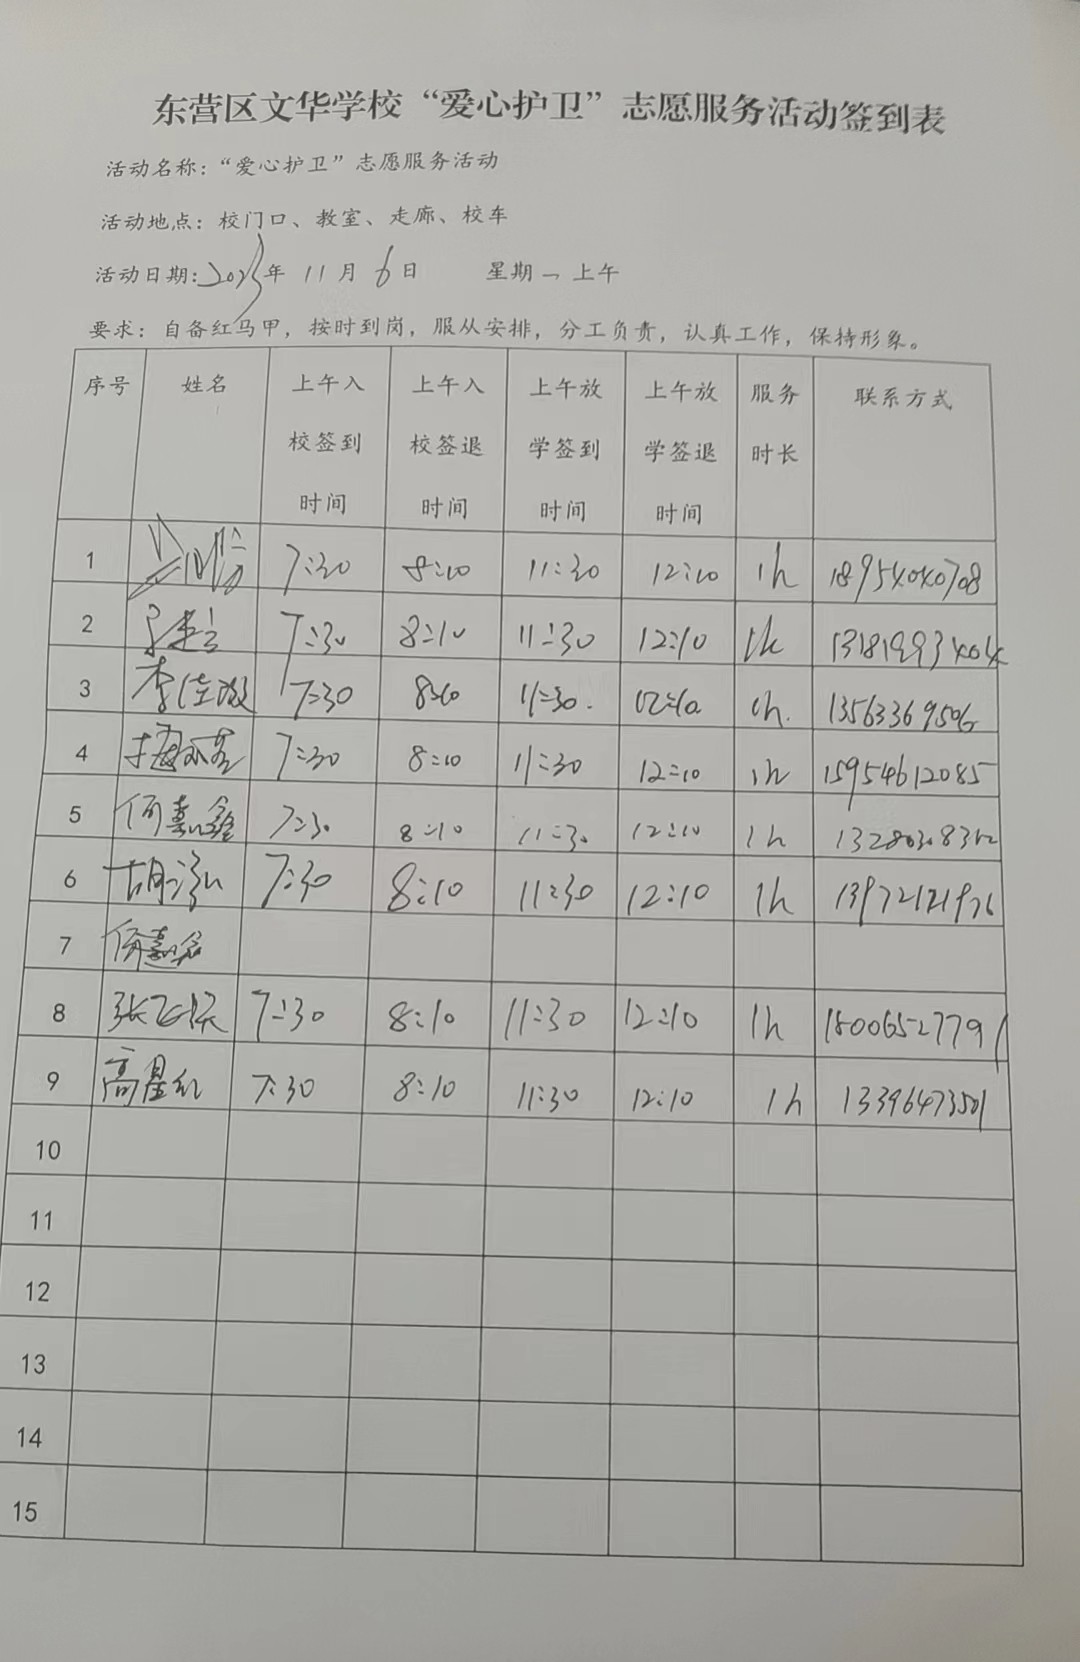 东营区文华学校“爱心护卫”志愿服务活动签到表
活动名称：“爱心护卫”志愿服务活动
活动地点：校门口、教室、走廊、校车
活动日期：2023年 11月 6日 星期一 上午
要求：自备红马甲，按时到岗，服从安排，分工负责，认真工作，保持形象。
序号 姓名 上午入校签到时间 上午入校签退时间 上午放学签到时间 上午放学签退时间 服务时长 联系方式
1 7:30 8:10 11:30 12:10 1h 18954040708
2 7:30 8:10 11:30 12:10 1h
3 7:30 8:10 11:30 12:10 1h 13563369506
4 7:30 8:10 11:30 12:10 1h 15954612085
5 何嘉鑫 7:30 8:10 11:30 12:10 1h
6 胡泓 7:30 8:10 11:30 12:10 1h
7
8 7:30 8:10 11:30 12:10 1h 18006527791
9 高星红 7:30 8:10 11:30 12:10 1h 13396473501
10
11
12
13
14
15